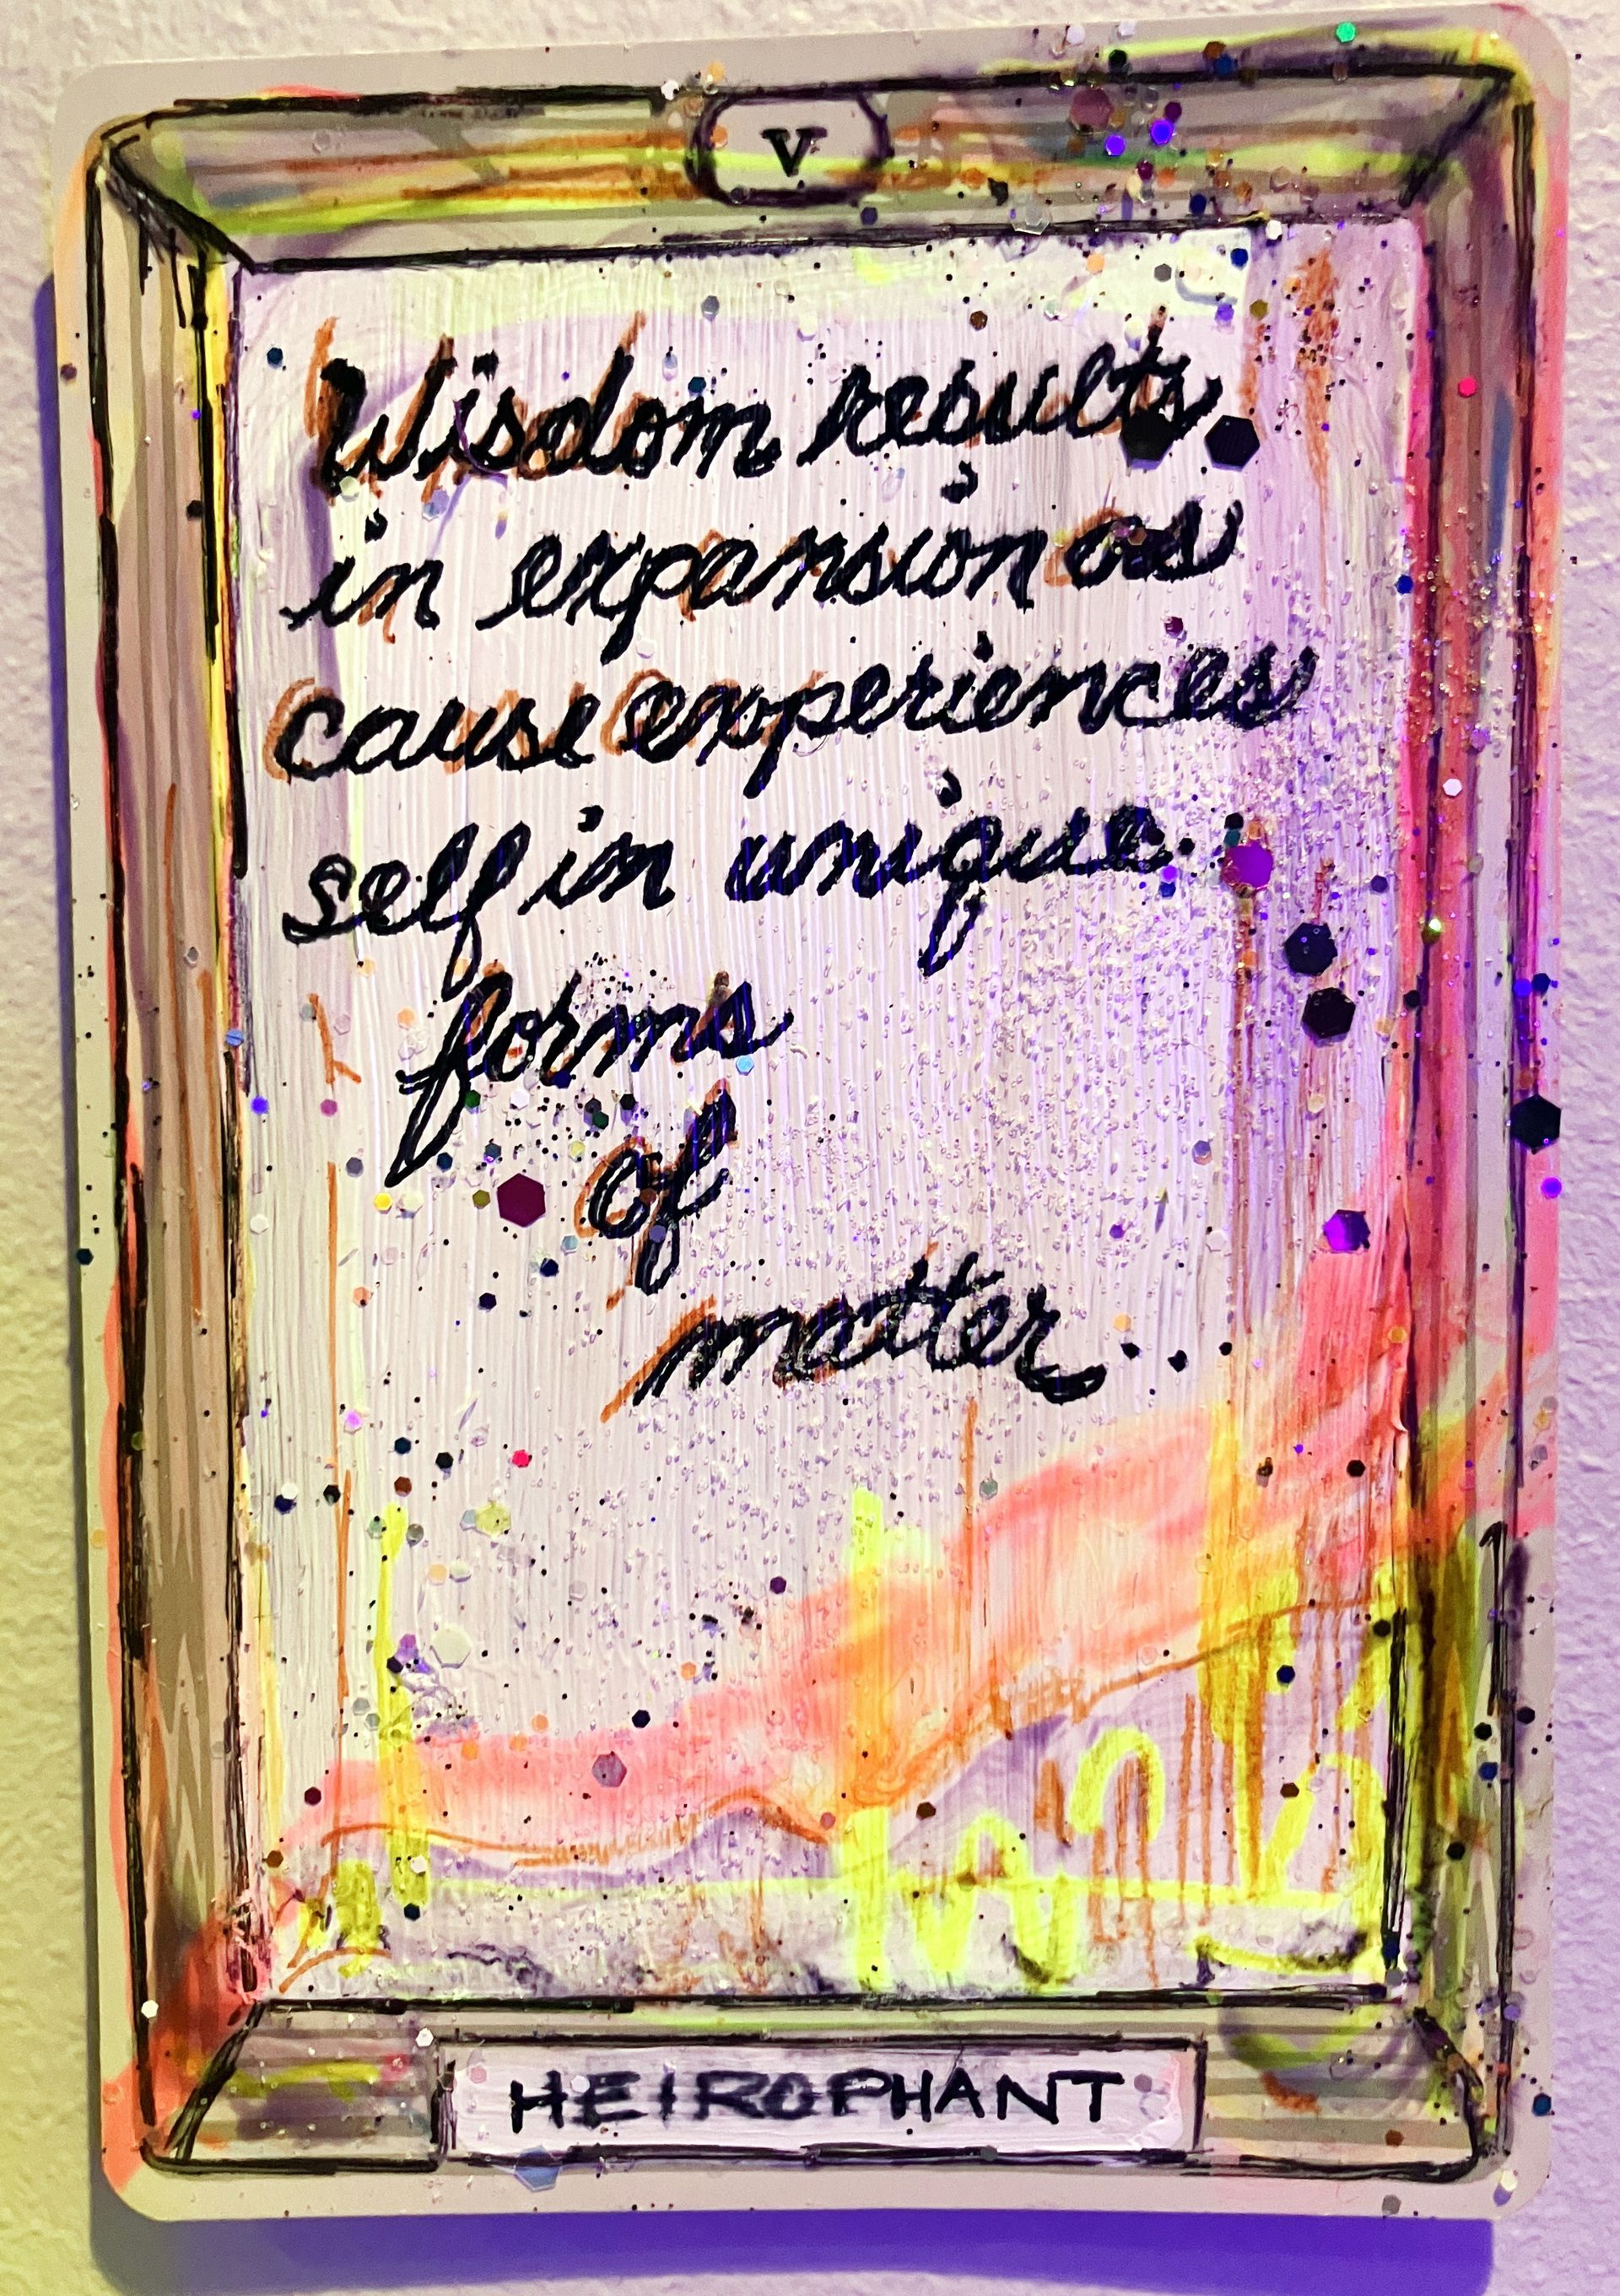 V
Wisdom results
in expansion as
cause experiences
self in unique
forms
of
matter...
HEIROPHANT